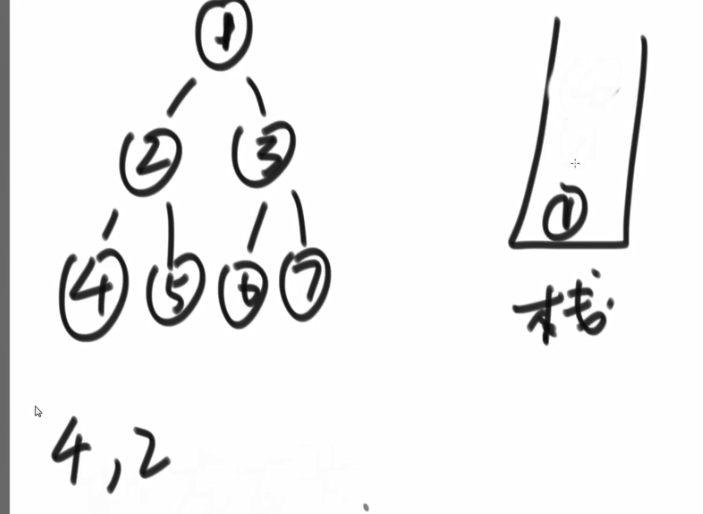 ①
② ③
④ ⑤ ⑥ ⑦
①
栈
4,2